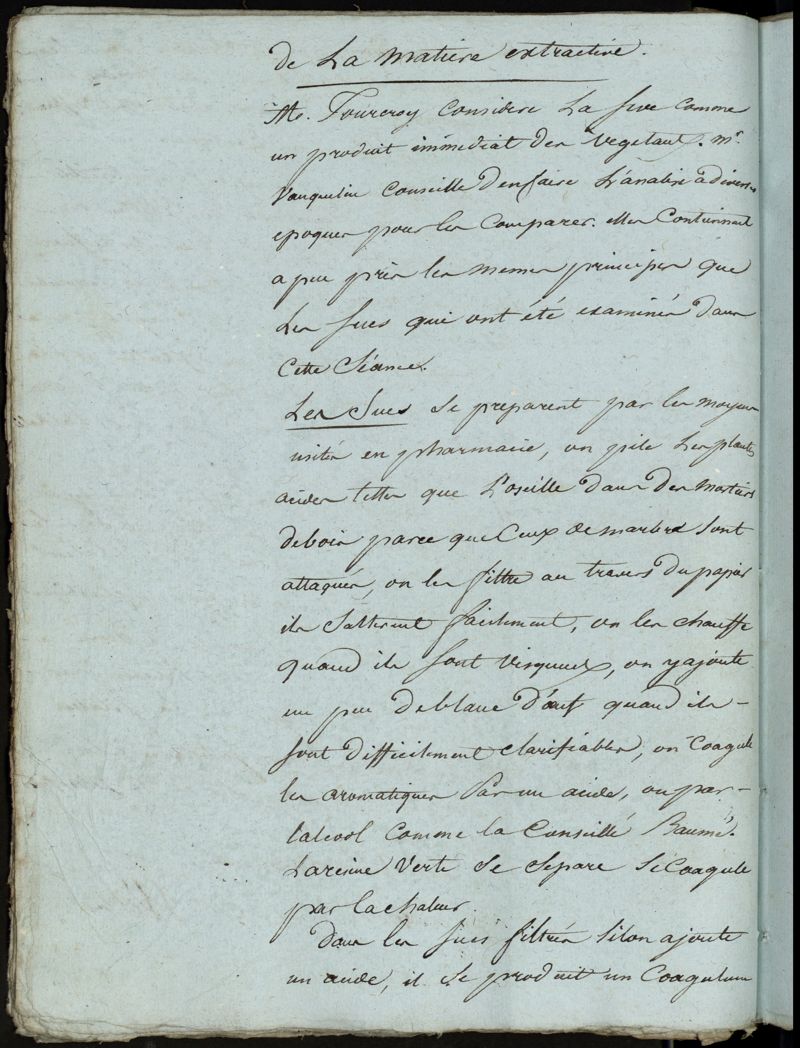 de La matiere extractive.
Mr. Fourcroy considere La seve comme
un produit immédiat des vegetaux. mr.
Vauquelin Conseille d'enfaire L'analise à diverses
epoques pour les Comparer. elles Contiennent
a peu près les memes principes que
Les sucs qui ont été examinés dans
Cette Séance.
Les Sucs se preparent par les moyens
usités en pharmacie, on pile Les plantes
acides telles que L'oseille dans des mortiers
debois parce que Ceux de marbre sont
attaqués, on les filtre au travers du papier
ils s'altèrent facilement, on les chauffe
quand ils sont visqueux, on y ajoute
un peu de blanc d'œuf quand ils -
sont difficilement clarifiables, on Coagule
les aromatiques Par un acide, ou par -
l'alcool comme la Conseillé Baumé.
La resine verte se separe se Coagule
par la chaleur.
Dans les sucs filtrés si lon ajoute
un acide, il se produit un Coagulum